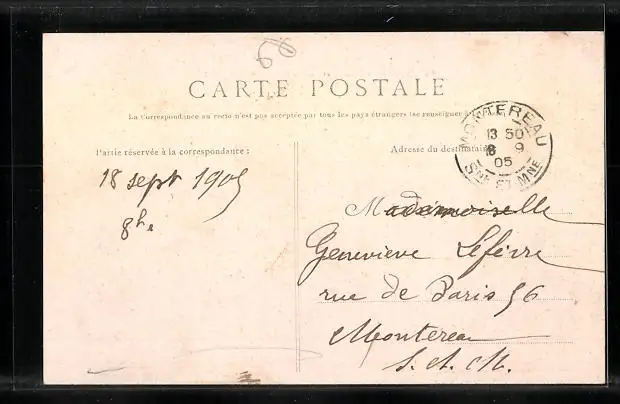 CARTE POSTALE
La Correspondance au recto n'est pas acceptée par tous les pays étrangers (se renseigner à la
MONTEREAU
13 50
18 9
05
SNE ET MNE
Partie réservée à la correspondance :
Adresse du destinataire
18 sept 1905
8h
Mademoiselle
Geneviève Lefèvre
rue de Paris 56
Montereau
S. et M.